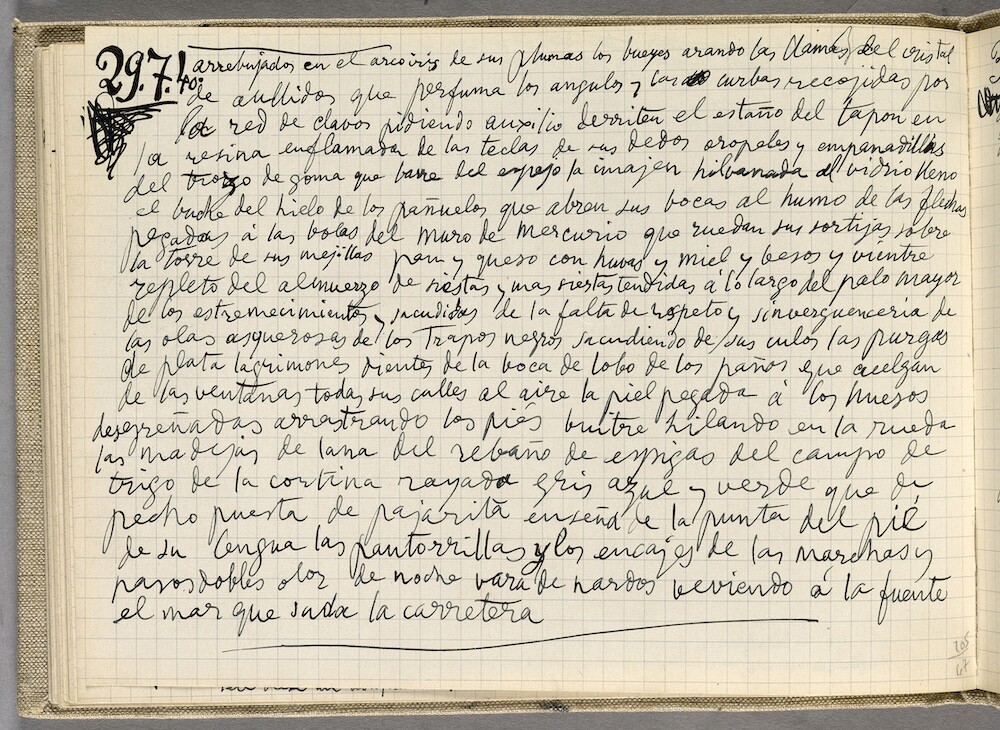 29.7.40.
arrebujados en el arcoiris de sus plumas los bueyes arando las llamas del cristal
de aullidos que perfuma los angulos y las curbas recojidas por
la red de clavos pidiendo auxilio derriten el estaño del tapon en
la resina enflamada de las teclas de sus dedos oropeles y empanadillas
del trozo de goma que barre del espejo la imajen hilbanada al vidrio lleno
el buche del hielo de los pañuelos que abren sus bocas al humo de las flechas
pegadas á las bolas del muro de mercurio que ruedan sus sortijas sobre
la torre de sus mejillas pan y queso con huvas y miel y besos y vientre
repleto del almuerzo de siestas y mas siestas tendidas á lo largo del palo mayor
de los estremecimientos y sacudidas de la falta de respeto y sinverguenceria de
las olas asquerosas de los trapos negros sacudiendo de sus culos las purgas
de plata lagrimones dientes de la boca de lobo de los paños que cuelgan
de las ventanas todas sus calles al aire la piel pegada á los huesos
desgreñadas arrastrando los piés buitre hilando en la rueda
las madejas de lana del rebaño de espigas del campo de
trigo de la cortina rayada gris azul y verde que de
pecho puesta de pajarita enseña de la punta del pié
de su lengua las pantorrillas y los encajes de las marchas y
pasos dobles olor de noche vara de nardos veviendo á la fuente
el mar que suda la carretera